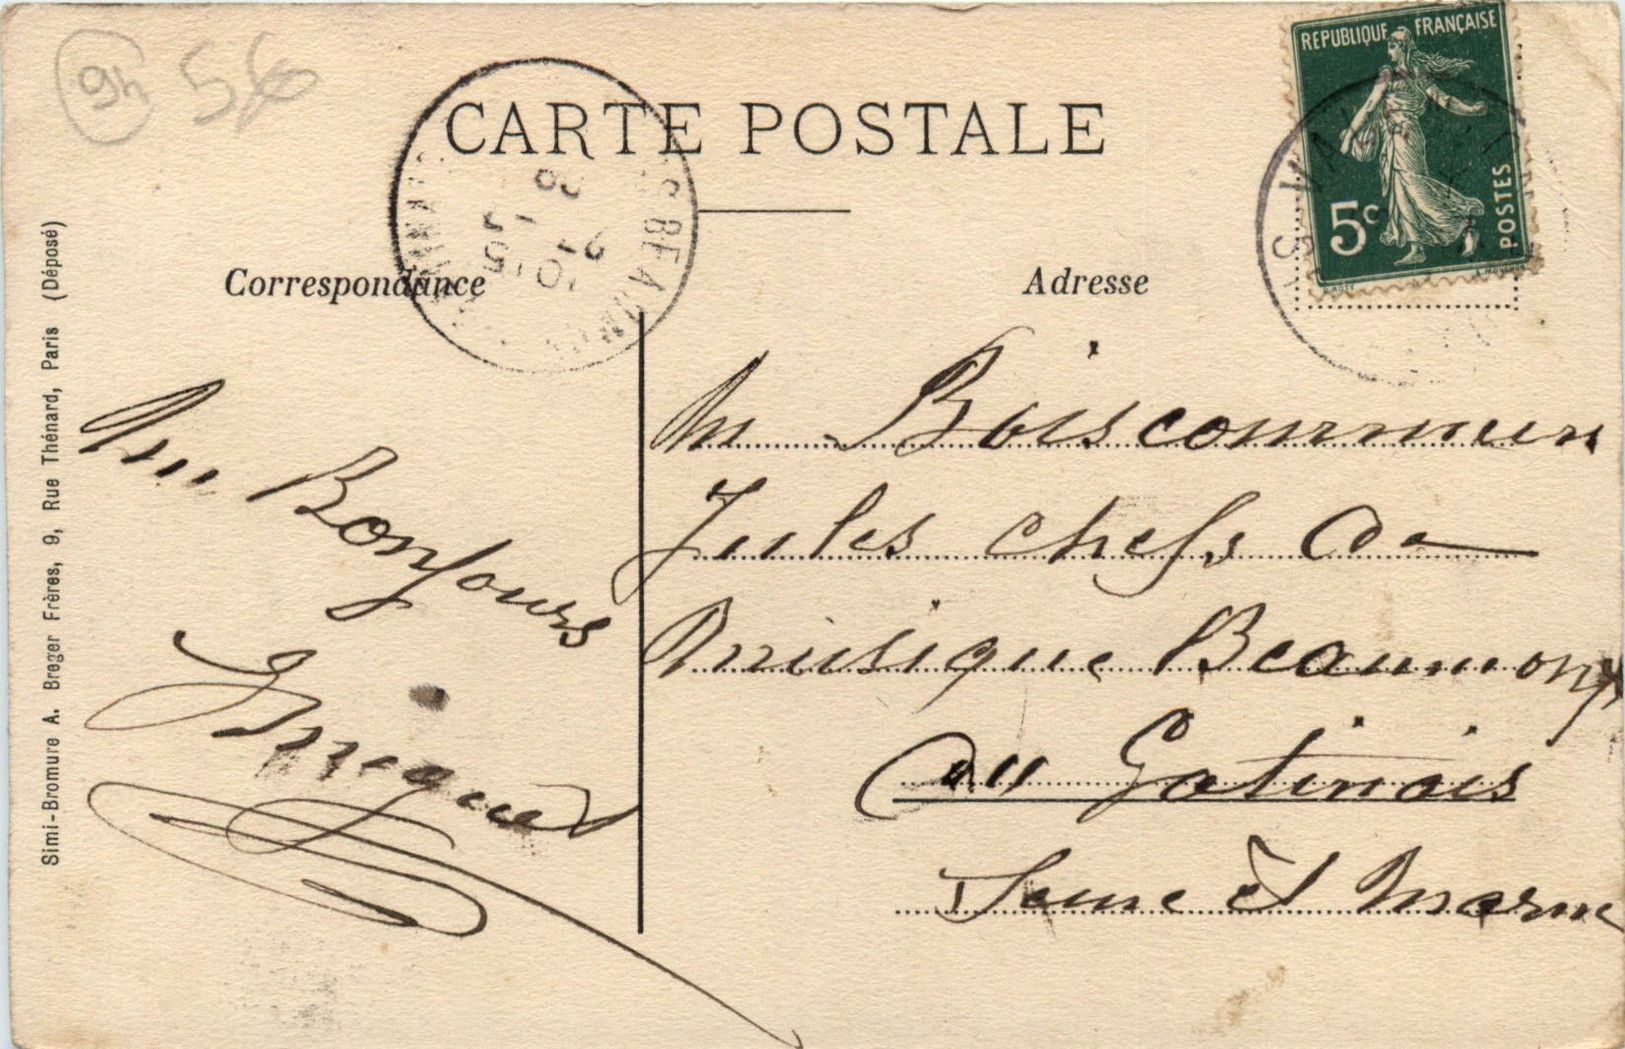 94 56
CARTE POSTALE
REPUBLIQUE FRANÇAISE
5c
POSTES
BEAUMO
10 15
9 1
08
Correspondance
Adresse
Simi-Bromure A. Breger Frères, 9, Rue Thénard, Paris (Déposé)
Bonjours
M Boiscourmun
Jules chefs De
Musique Beaumont
Du Gatinais
Seine et Marne